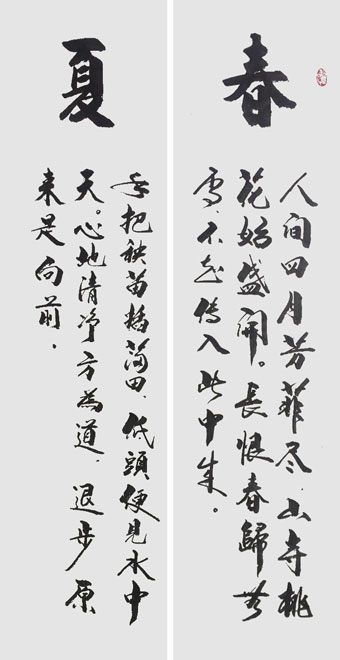 春
人间四月芳菲尽.山寺桃
花始盛開。長恨春歸无
不知轉入此中来。
夏
手把秧苗插满田.低頭便見水中
天。心地清净方為道.退步原
来是向前.